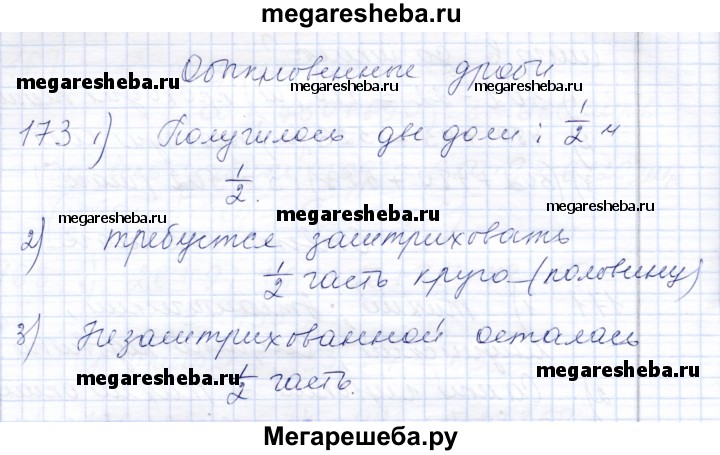 megaresheba.ru
Обыкновенные дроби
megaresheba.ru megaresheba.ru megaresheba.ru
173 1) Получилось две доли: 1/2 и
1/2.
megaresheba.ru megaresheba.ru megaresheba.ru
2) требуется заштриховать
1/2 часть круга (половину)
3) Незаштрихованной осталась
megaresheba.ru megaresheba.ru megaresheba.ru
1/2 часть.
Мегарешеба.ру